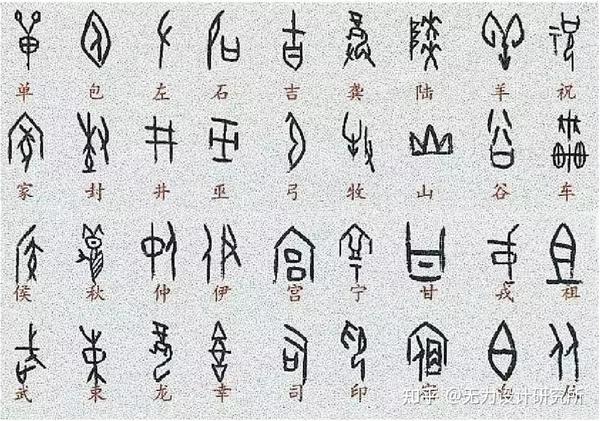 单 包 左 石 吉 龚 陆 羊 祝
家 封 井 巫 弓 牧 山 谷 车
侯 秋 仲 伊 宫 宁 甘 戎 祖
武 束 龙 幸 司 印
知乎 @无力设计研究所